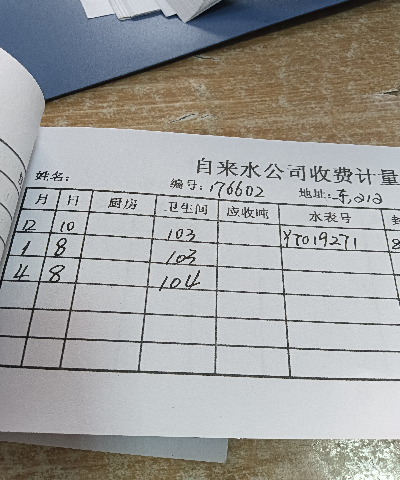 自来水公司收费计量
姓名: 编号: 176602 地址: 东212
月 日 厨房 卫生间 应收吨 水表号
12 10 103 Y7019271
1 8 103
4 8 104